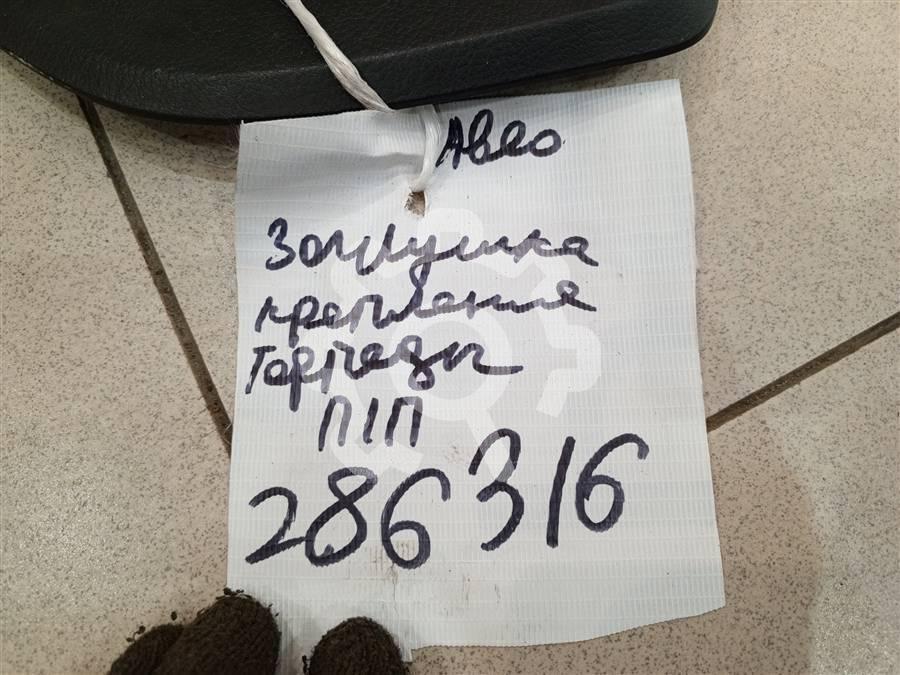 Авео
Заглушка
крепления
Торпеды
П/П
286316